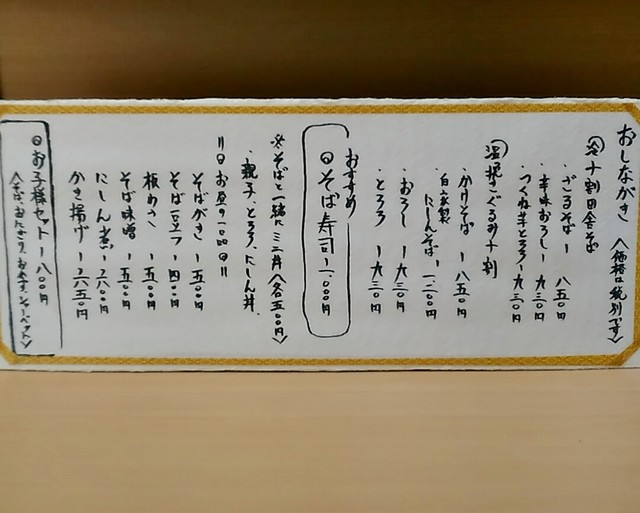 おしながき 〈価格は税別です〉
冷 十割田舎そば
・ざるそば ー 八五〇円
・辛味おろし ー 九三〇円
・つくね芋とろろ ー 九三〇円
温 挽きぐるみ十割
・かけそば ー 八五〇円
・自家製にしんそば ー 一二〇〇円
・おろし ー 九三〇円
・とろろ ー 九三〇円
おすすめ
◎そば寿司 ー 一、〇〇〇円
※そばと一緒にミニ丼〈各五〇〇円〉
・親子、とろろ、にしん丼
〃お昼の一品〃
そばがき ー 五〇〇円
そば豆フ ー 四〇〇円
板わさ ー 五〇〇円
そば味噌 ー 五〇〇円
にしん煮 ー 八〇〇円
かき揚げ ー 六五〇円
◎お子様セット ー 八〇〇円
〈そば、おにぎり、おかず、シャーベット〉